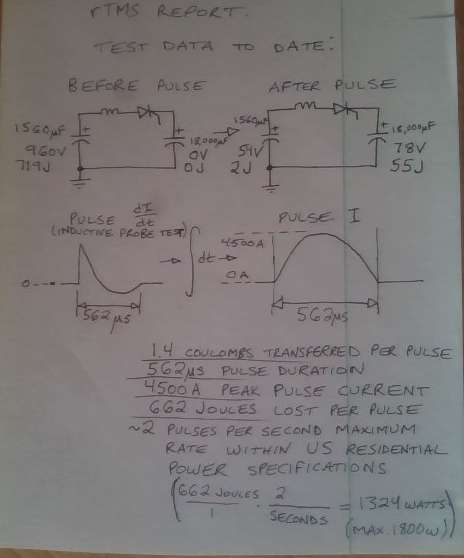 rTMS REPORT.
TEST DATA TO DATE:
BEFORE PULSE
AFTER PULSE
1560µF
960V
719J
+
+
18,000µF
0V
0J
1560µF
+
54V
2J
+
18,000µF
78V
55J
PULSE dI/dt
(INDUCTIVE PROBE TEST)
0
562µs
∫ dt
PULSE I
4500A
0A
562µs
1.4 COULOMBS TRANSFERRED PER PULSE
562µs PULSE DURATION
4500A PEAK PULSE CURRENT
662 JOULES LOST PER PULSE
~2 PULSES PER SECOND MAXIMUM
RATE WITHIN US RESIDENTIAL
POWER SPECIFICATIONS
(662 JOULES/1 · 2/SECONDS = 1324 WATTS)
(MAX. 1800W)